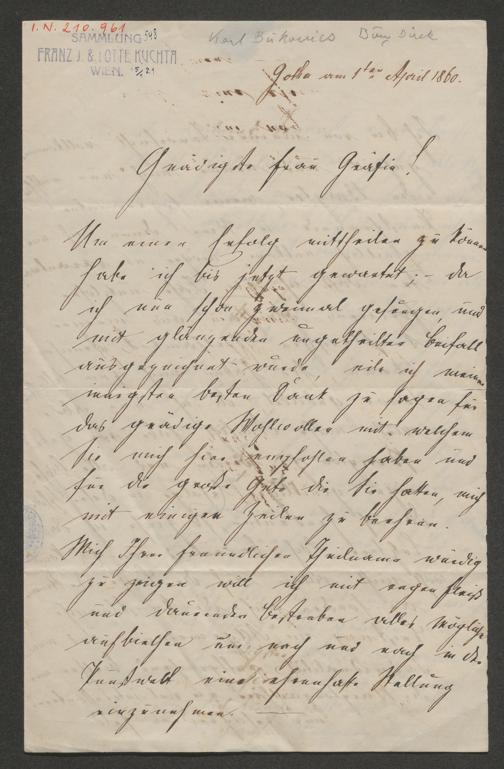 I.N. 210.961
SAMMLUNG 548
FRANZ J. & LOTTE KUCHTA
WIEN. 15/21
Karl Bukovics
Gotha am 1ten April 1860.
Gnädigste Frau Gräfin!
Um einen Erfolg mittheilen zu können
habe ich bis jetzt gewartet; – da
ich nun schon zweimal gesungen, und
mit glänzenden ungetheilten Beifall
ausgezeichnet wurde, eile ich meinen
innigsten besten Dank zu sagen für
das gnädige Wohlwollen mit welchem
Sie mich hier empfohlen haben und
für die große Güte die Sie hatten, mich
mit einigen Zeilen zu beehren.
Mich Ihrer freundlichen Theilname würdig
zu zeigen will ich mit regen Fleiß
und dauernden Bestreben alles Mögliche
aufbiethen um nach und nach in der
Kunstwelt eine ehrenhafte Stellung
einzunehmen. —